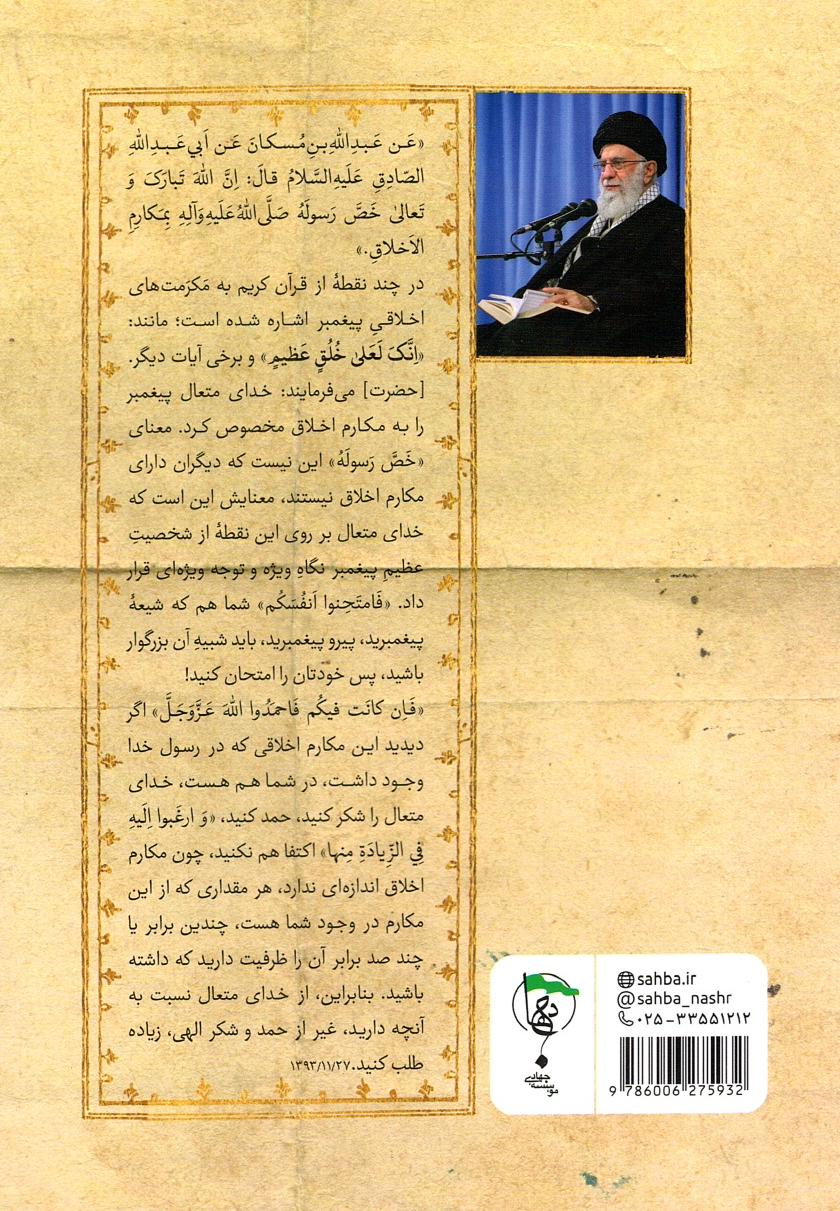 «عَـن عَـبـدِاللّٰهِ‌بـنِ‌مُـسـكـانَ عَـن اَبي‌عَـبـدِاللّٰهِ
الصّادِقِ عَلَيهِ‌السَّلامُ قالَ: اِنَّ اللّٰهَ تَبارَکَ وَ
تَعالىٰ خَصَّ رَسولَهُ صَلَّى‌اللّٰهُ‌عَلَيهِ‌وَآلِهِ بِمَـكارِمِ
الاَخلاقِ.»
در چند نقطهٔ از قرآن کریم به مَکرَمت‌های
اخلاقیِ پیغمبر اشاره شده است؛ مانند:
«اِنَّکَ لَعَلىٰ خُلُقٍ عَظيمٍ» و برخی آیات دیگر.
[حضرت] می‌فرمایند: خدای متعال پیغمبر
را به مکارم اخلاق مخصوص کرد. معنای
«خَصَّ رَسولَهُ» این نیست که دیگران دارای
مکارم اخلاق نیستند، معنایش این است که
خدای متعال بر روی این نقطهٔ از شخصیتِ
عظیمِ پیغمبر نگاهِ ویژه و توجه ویژه‌ای قرار
داد. «فَامتَحِنوا اَنفُسَكُم» شما هم که شیعهٔ
پیغمبرید، پیرو پیغمبرید، باید شبیهِ آن بزرگوار
باشید، پس خودتان را امتحان کنید!
«فَـاِن كانَت فيكُم فَاحمَدُوا اللّٰهَ عَـزَّوَجَـلَّ» اگر
دیدید این مکارم اخلاقی که در رسول خدا
وجود داشت، در شما هم هست، خدای
متعال را شکر کنید، حمد کنید، «وَ ارغَبوا اِلَيهِ
فِي الزِّيادَةِ مِنها» اکتفا هم نکنید، چون مکارم
اخلاق اندازه‌ای ندارد، هر مقداری که از این
مکارم در وجود شما هست، چندین برابر یا
چند صد برابر آن را ظرفیت دارید که داشته
باشید. بنابراین، از خدای متعال نسبت به
آنچه دارید، غیر از حمد و شکر الهی، زیاده
طلب کنید.۱۳۹۳/۱۱/۲۷
sahba.ir
@sahba_nashr
۰۲۵-۳۳۵۵۱۲۱۲
9 786006 275932
موسسه جهادی